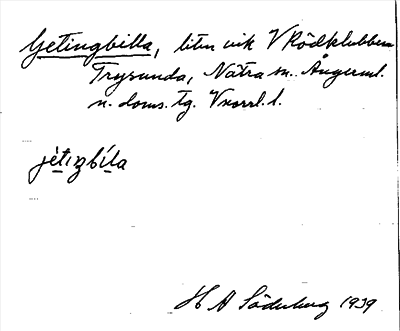 Getingbilla, liten vik V Rödklubben
Trysunda, Nätra sn. Ångerml.
n. doms. tg. Vnorrl. l.
jètiŋbíla
H A Söderberg 1939